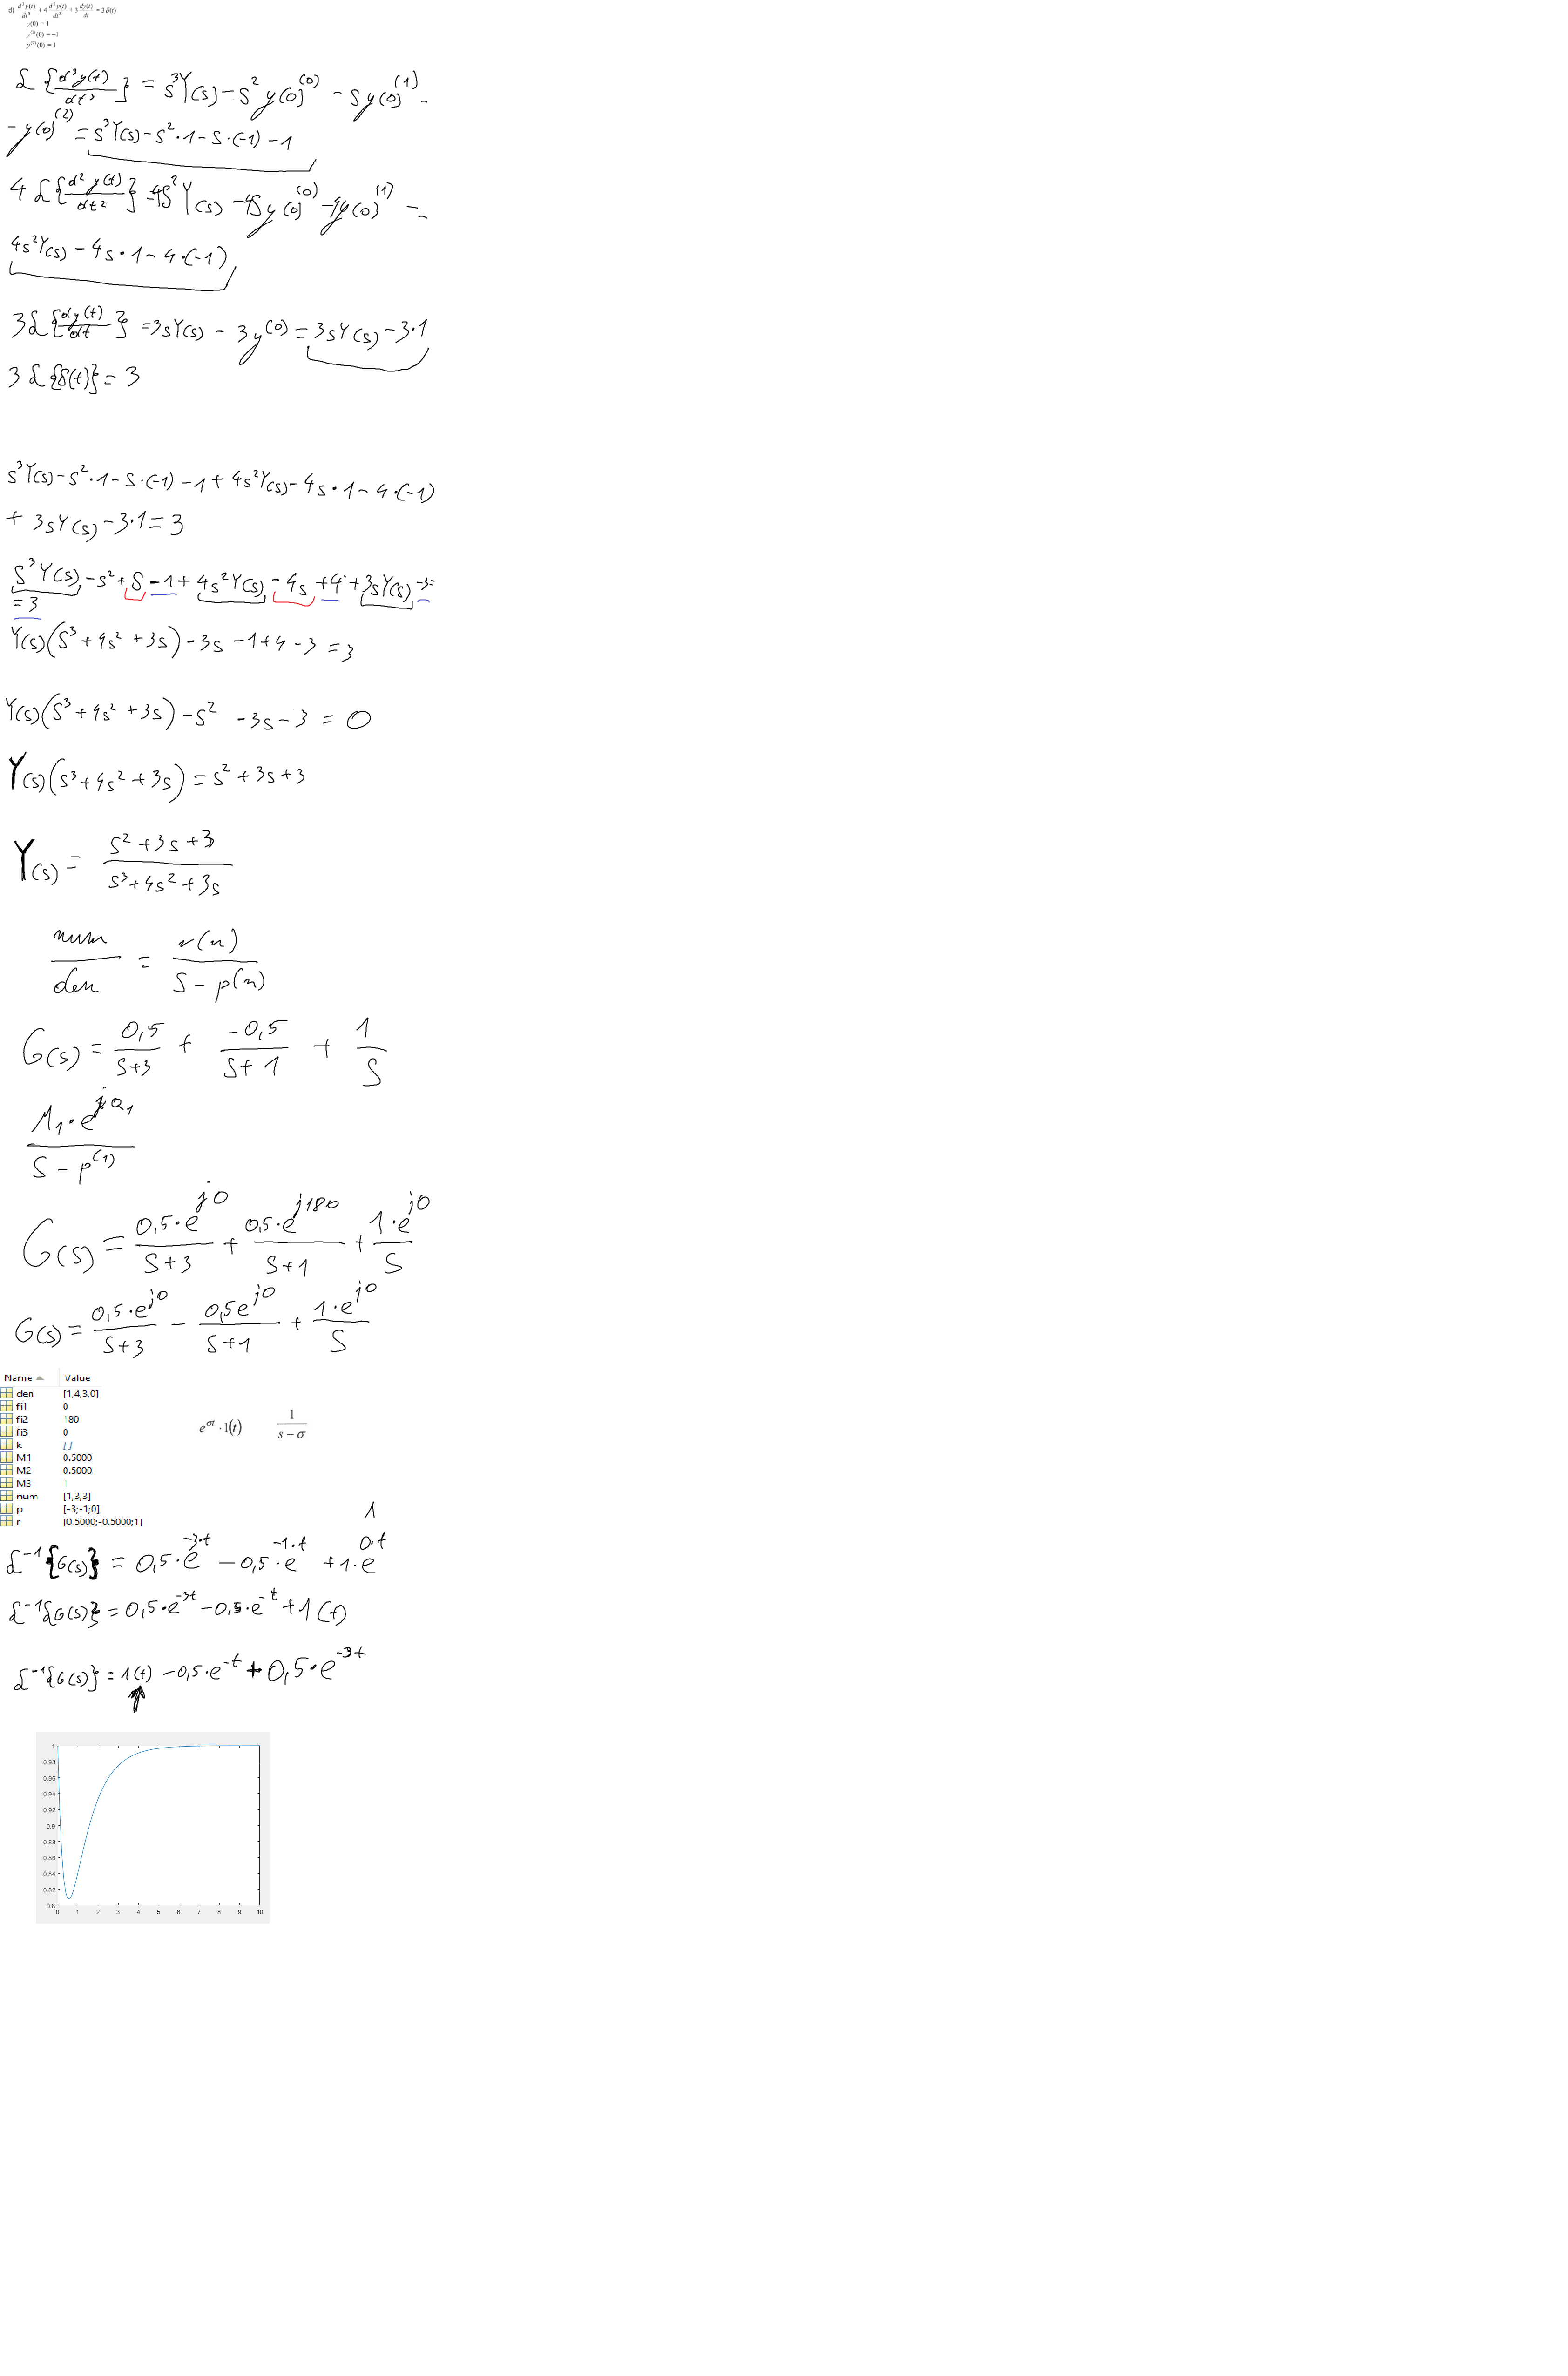 d) d³y(t)/dt³ + 4 d²y(t)/dt² + 3 dy(t)/dt = 3 δ(t)
y(0) = 1
y⁽¹⁾(0) = −1
y⁽²⁾(0) = 1
ℒ{d³y(t)/dt³} = s³Y(s) − s² y(0)⁽⁰⁾ − s y(0)⁽¹⁾ −
− y(0)⁽²⁾ = s³Y(s) − s²·1 − s·(−1) − 1
4 ℒ{d²y(t)/dt²} = 4s²Y(s) − 4s y(0)⁽⁰⁾ − 4y(0)⁽¹⁾ =
4s²Y(s) − 4s·1 − 4·(−1)
3ℒ{dy(t)/dt} = 3sY(s) − 3y⁽⁰⁾ = 3sY(s) − 3·1
3 ℒ{δ(t)} = 3
s³Y(s) − s²·1 − s·(−1) − 1 + 4s²Y(s) − 4s·1 − 4·(−1)
+ 3sY(s) − 3·1 = 3
s³Y(s) − s² + s − 1 + 4s²Y(s) − 4s + 4 + 3sY(s) − 3 =
= 3
Y(s)(s³ + 4s² + 3s) − 3s − 1 + 4 − 3 = 3
Y(s)(s³ + 4s² + 3s) − s² − 3s − 3 = 0
Y(s)(s³ + 4s² + 3s) = s² + 3s + 3
Y(s) = (s² + 3s + 3)/(s³ + 4s² + 3s)
num/den = r(n)/(s − p(n))
G(s) = 0,5/(s+3) + −0,5/(s+1) + 1/s
M₁·e^(jφ₁)/(s − p⁽¹⁾)
G(s) = 0,5·e^(j0)/(s+3) + 0,5·e^(j180)/(s+1) + 1·e^(j0)/s
G(s) = 0,5·e^(j0)/(s+3) − 0,5e^(j0)/(s+1) + 1·e^(j0)/s
Name Value
den [1,4,3,0]
fi1 0
fi2 180
fi3 0
k []
M1 0.5000
M2 0.5000
M3 1
num [1,3,3]
p [-3;-1;0]
r [0.5000;-0.5000;1]
e^(σt) · 1(t) 1/(s − σ)
1
ℒ⁻¹{G(s)} = 0,5·e^(−3·t) − 0,5·e^(−1·t) + 1·e^(0·t)
ℒ⁻¹{G(s)} = 0,5·e^(−3t) − 0,5·e^(−t) + 1(t)
ℒ⁻¹{G(s)} = 1(t) − 0,5·e^(−t) + 0,5·e^(−3t)
1
0.98
0.96
0.94
0.92
0.9
0.88
0.86
0.84
0.82
0.8
0 1 2 3 4 5 6 7 8 9 10